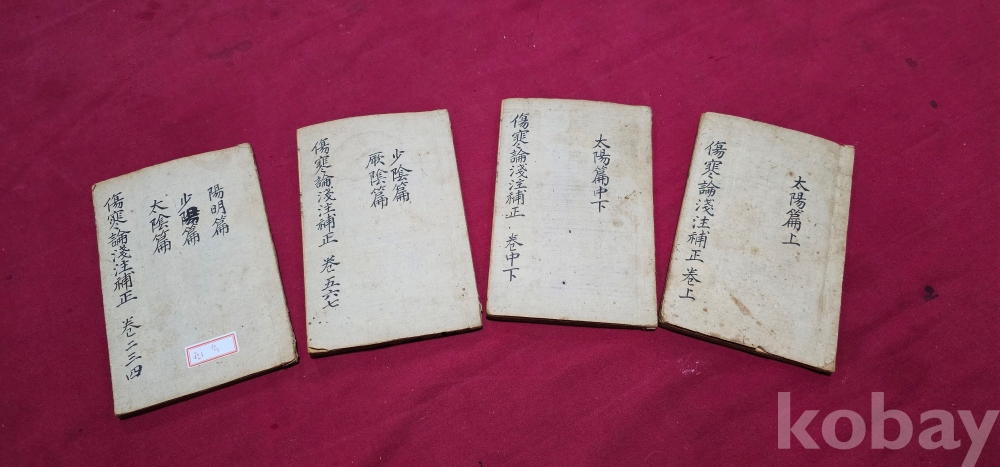 太陽篇上
傷寒論淺注補正 卷上
太陽篇中下
傷寒論淺注補正 卷中下
少陰篇
厥陰篇
傷寒論淺注補正 卷五六七
陽明篇
少陽篇
太陰篇
傷寒論淺注補正 卷二三四
kobay